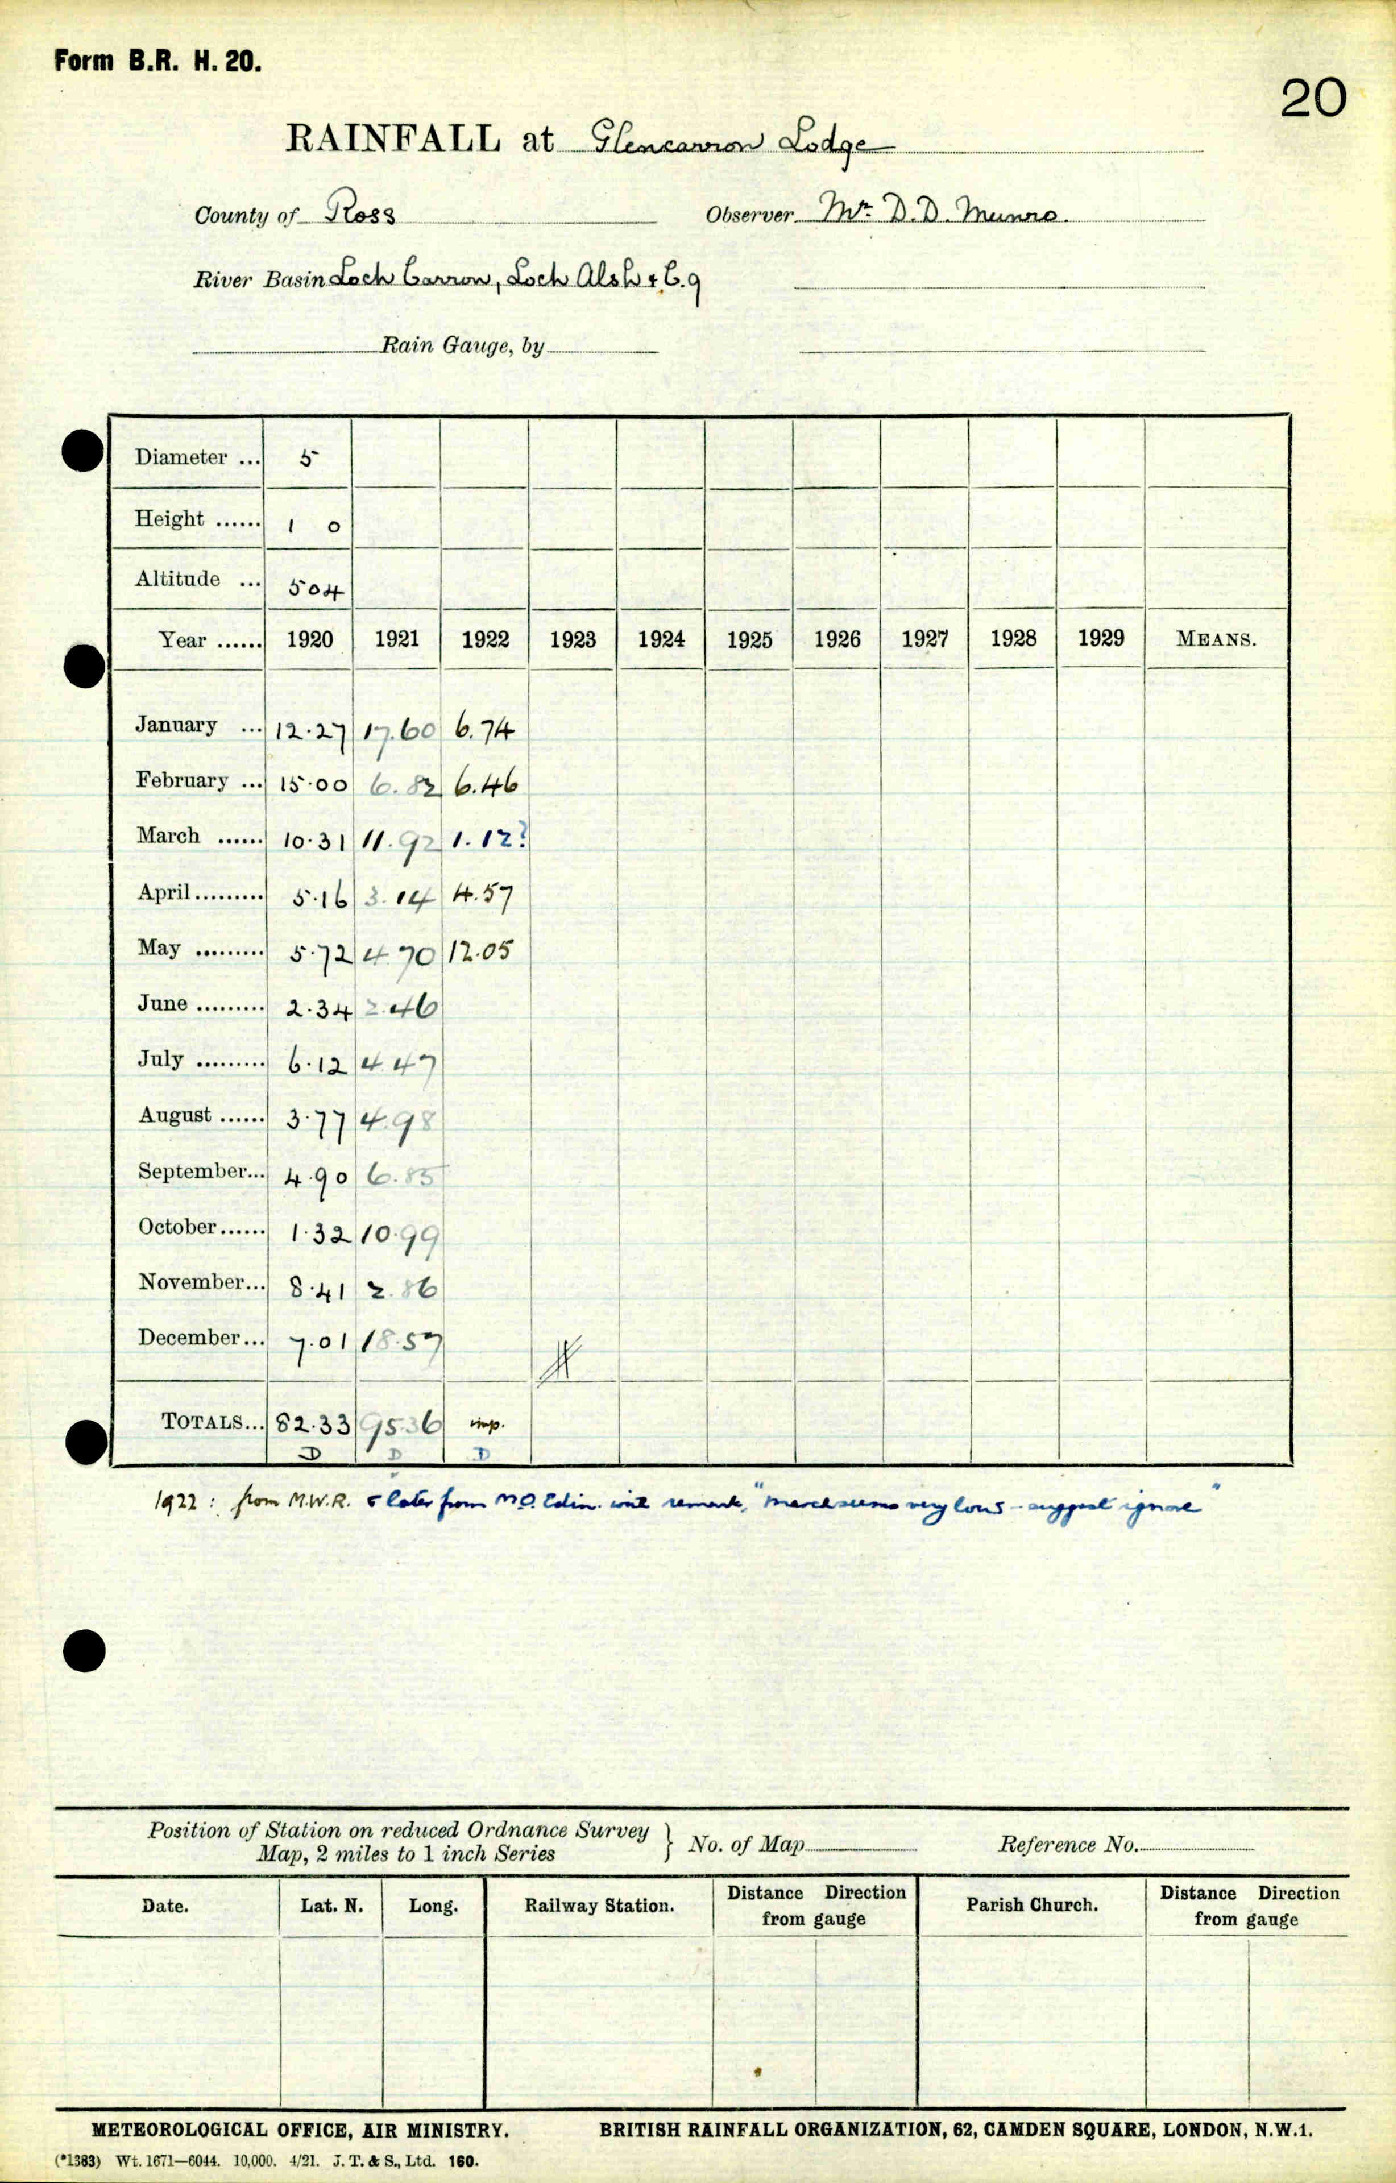 Form B.R. H. 20.
20
RAINFALL at Glencarron Lodge
County of Ross Observer Mr. D. D. Munro.
River Basin Loch Carron, Loch Alsh & C. 9
Rain Gauge, by
Diameter ... 5
Height ...... 1 0
Altitude ... 504
Year ...... 1920 1921 1922 1923 1924 1925 1926 1927 1928 1929 MEANS.
January ... 12.27 17.60 6.74
February ... 15.00 6.82 6.46
March ...... 10.31 11.92 1.12?
April ......... 5.16 3.14 4.57
May ......... 5.72 4.70 12.05
June ......... 2.34 2.46
July ......... 6.12 4.47
August ...... 3.77 4.98
September... 4.90 6.85
October ...... 1.32 10.99
November... 8.41 2.86
December... 7.01 18.57
TOTALS... 82.33 95.36 imp.
D D D
1922 : from M.W.R. & later from M.O. Edin. with remark, "March seems very low - suggest ignore"
Position of Station on reduced Ordnance Survey
Map, 2 miles to 1 inch Series } No. of Map Reference No.
Date. Lat. N. Long. Railway Station. Distance Direction from gauge Parish Church. Distance Direction from gauge
METEOROLOGICAL OFFICE, AIR MINISTRY. BRITISH RAINFALL ORGANIZATION, 62, CAMDEN SQUARE, LONDON, N.W.1.
(*1383) Wt. 1671—6044. 10,000. 4/21. J. T. & S., Ltd. 160.